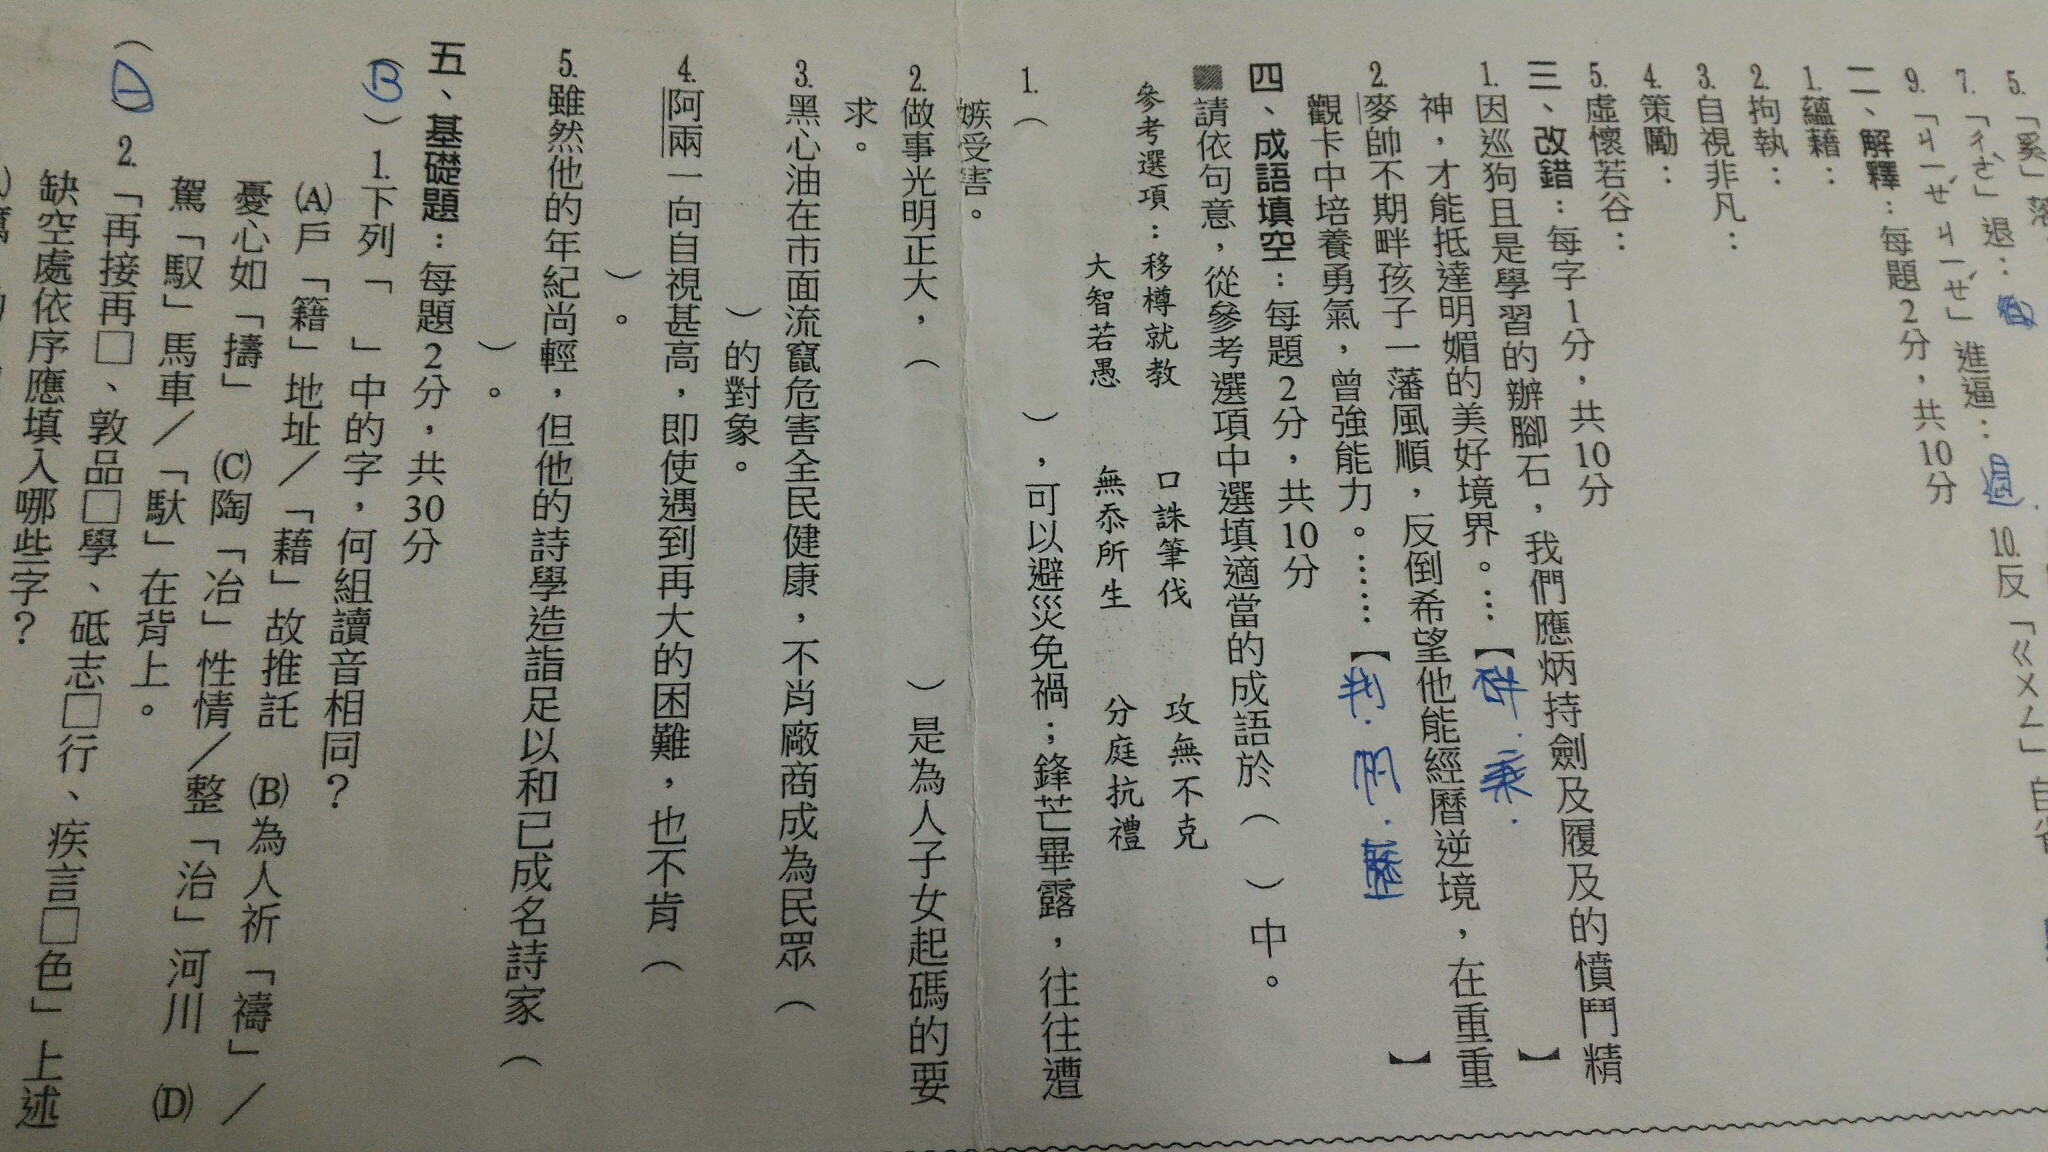 5.「奚」落
7.「ㄔㄜˋ」退：
9.「ㄐㄧㄝˊ ㄐㄧㄝˊ」進逼： 10.反「ㄍㄨㄥ」自省
二、解釋：每題2分，共10分
1.蘊藉：
2.拘執：
3.自視非凡：
4.策勵：
5.虛懷若谷：
三、改錯：每字1分，共10分
1.因巡狗且是學習的辦腳石，我們應炳持劍及履及的憤鬥精
神，才能抵達明媚的美好境界。…【 】
2.麥帥不期畔孩子一藩風順，反倒希望他能經曆逆境，在重重
觀卡中培養勇氣，曾強能力。……【 歷 】
四、成語填空：每題2分，共10分
請依句意，從參考選項中選填適當的成語於（ ）中。
參考選項：移樽就教 口誅筆伐 攻無不克
大智若愚 無忝所生 分庭抗禮
1.（ ），可以避災免禍；鋒芒畢露，往往遭
嫉受害。
2.做事光明正大，（ ）是為人子女起碼的要
求。
3.黑心油在市面流竄危害全民健康，不肖廠商成為民眾（
）的對象。
4.阿兩一向自視甚高，即使遇到再大的困難，也不肯（
）。
5.雖然他的年紀尚輕，但他的詩學造詣足以和已成名詩家（
）。
五、基礎題：每題2分，共30分
（B）1.下列「 」中的字，何組讀音相同？
(A)戶「籍」地址／「藉」故推託 (B)為人祈「禱」／
憂心如「擣」 (C)陶「冶」性情／整「治」河川 (D)
駕「馭」馬車／「馱」在背上。
（ 2.「再接再□、敦品□學、砥志□行、疾言□色」上述
缺空處依序應填入哪些字？